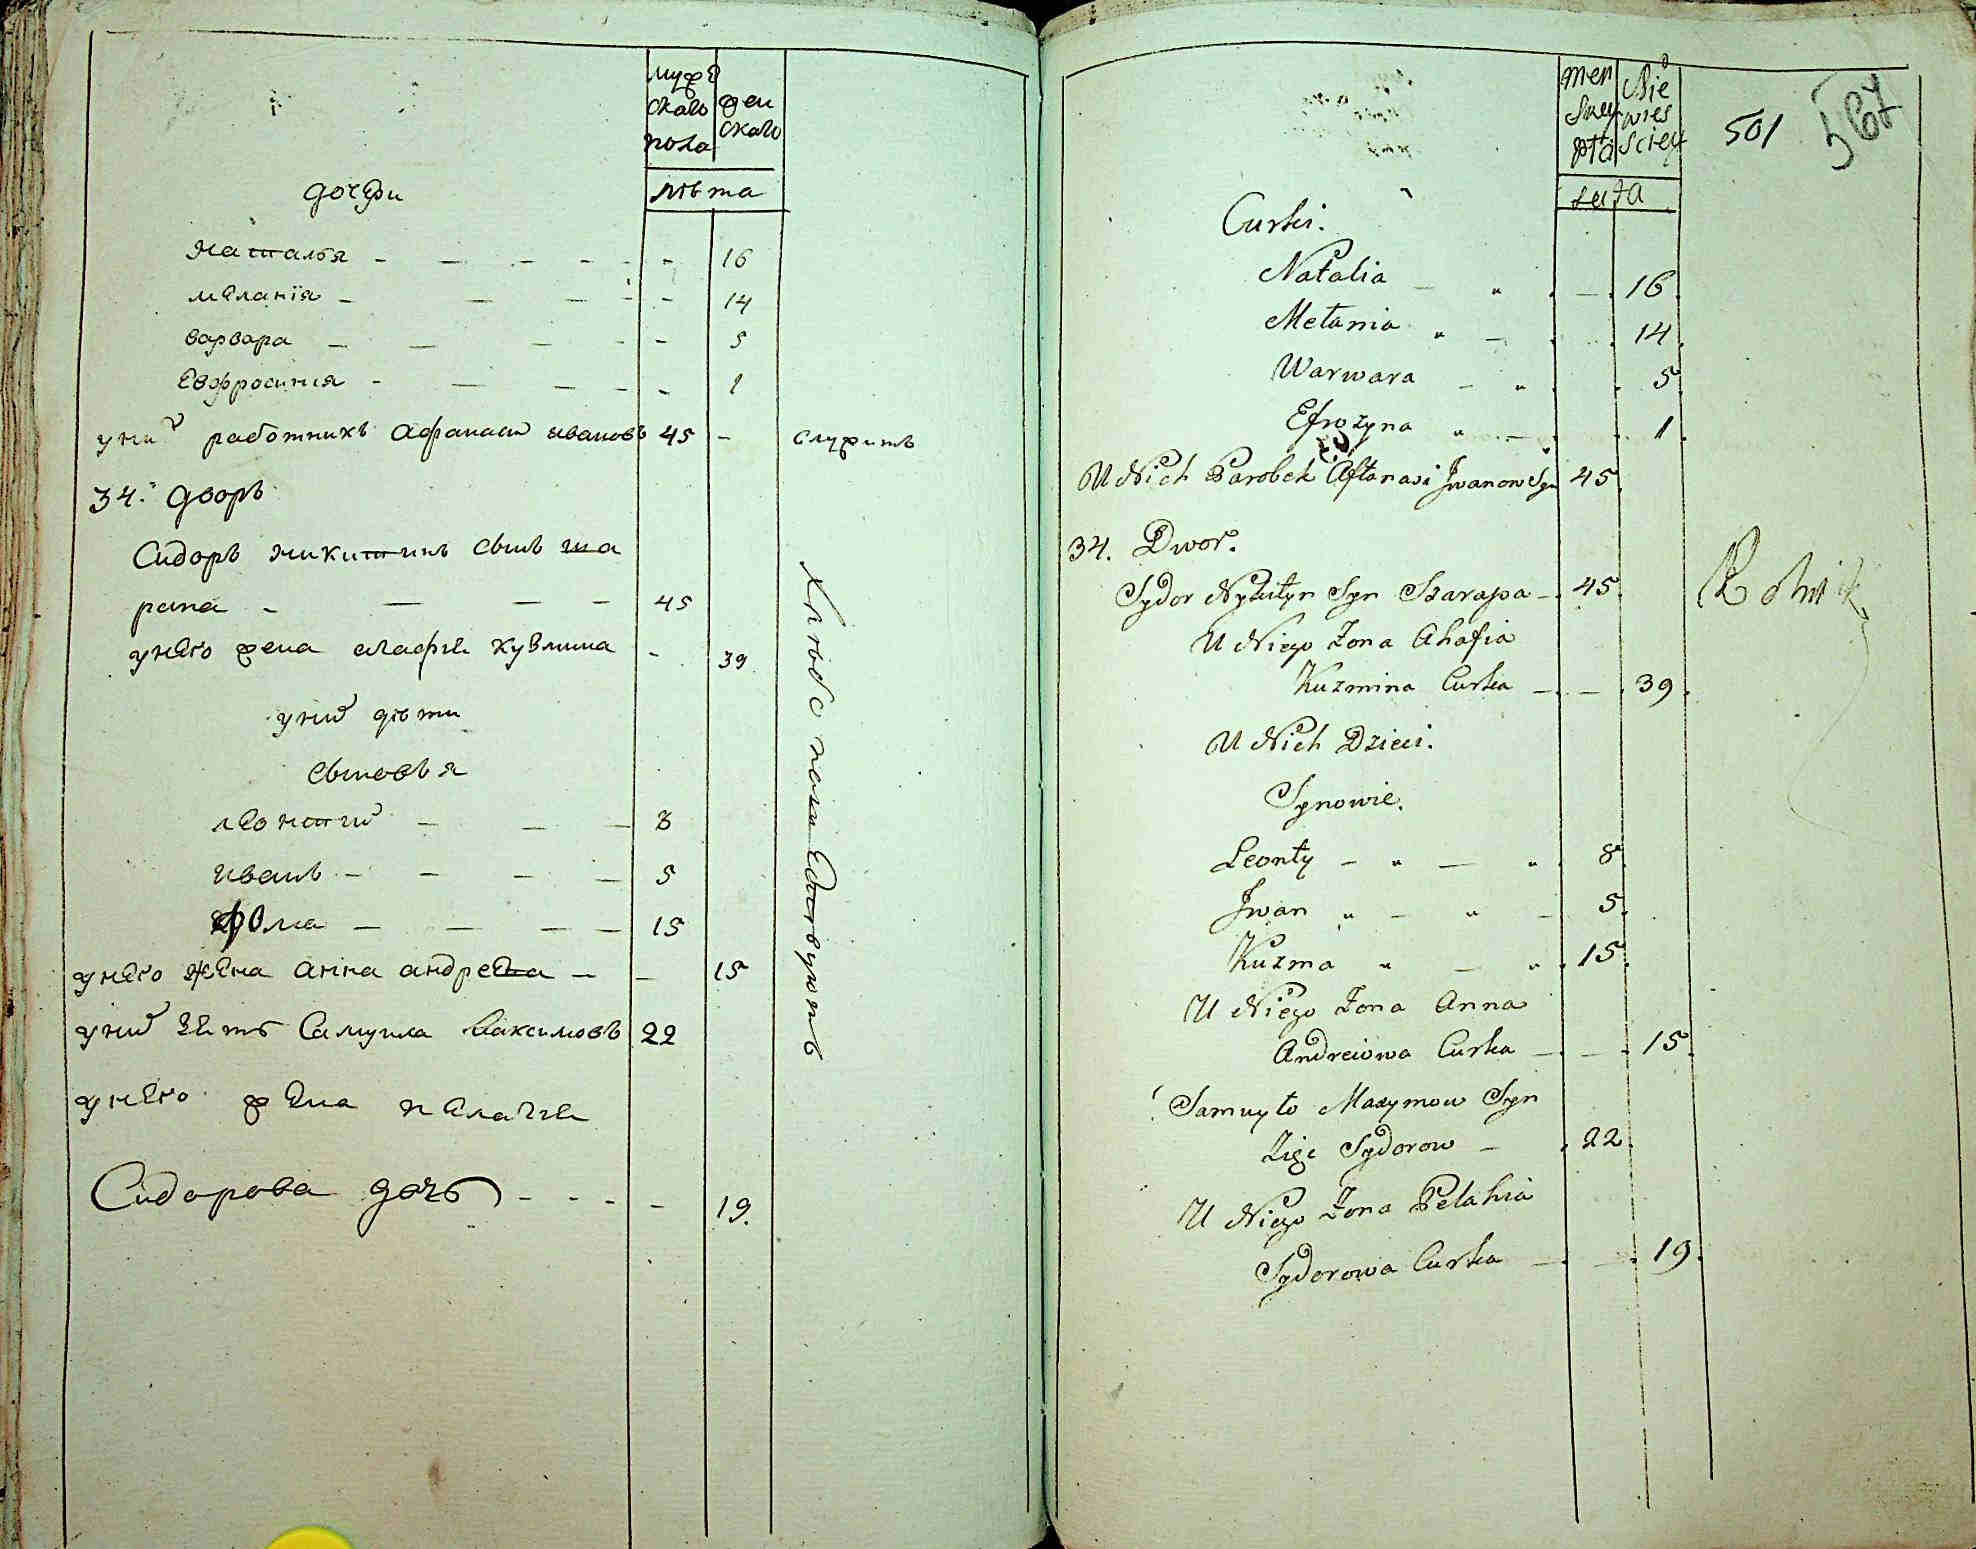 мужескаго пола
женскаго
лѣта
дочери
наталья - - - - - 16
меланія - - - - - 14
варвара - - - - - 5
евфросинія - - - - - 1
у них работникъ афанаси ивановъ 45 - служитъ
34. дворъ
Сидоръ никитинъ сынъ ша
рапа - - - - 45
у него жена агафия кузмина - 39
у них дѣти
сыновья
леонтий - - - 8
иванъ - - - - 5
фома - - - - 15
у него жена анна андреева - - 15
у них зять Самуила Максимовъ 22
у него жена пелагия
Сидорова дочь - - - - 19.
хлѣбопашествуютъ
Men
skey
płci
Nie
wies
ciey
Lata
501
567
Curki.
Natalia - " . - . 16.
Mełania " - . . 14.
Warwara - " . . 5.
Efrozyna " - . . 1.
U Nich Parobek Aftanasi Jwanow Syn 45.
34. Dwor.
Sydor Nykityn Syn Szarapa - . 45.
Rolnik
U Niego Zona Ahafia
Kuzmina Curka - . - . 39.
U Nich Dzieci.
Synowie.
Leonty - " - " . 8.
Jwan " - " - 5.
Kuzma " - " . 15.
U Niego Zona Anna
Andreiowa Curka - . - . 15.
Samuyło Maxymow Syn
Zięc Sydorow - . 22.
U Niego Zona Pelahia
Sydorowa Curka - . - . 19.